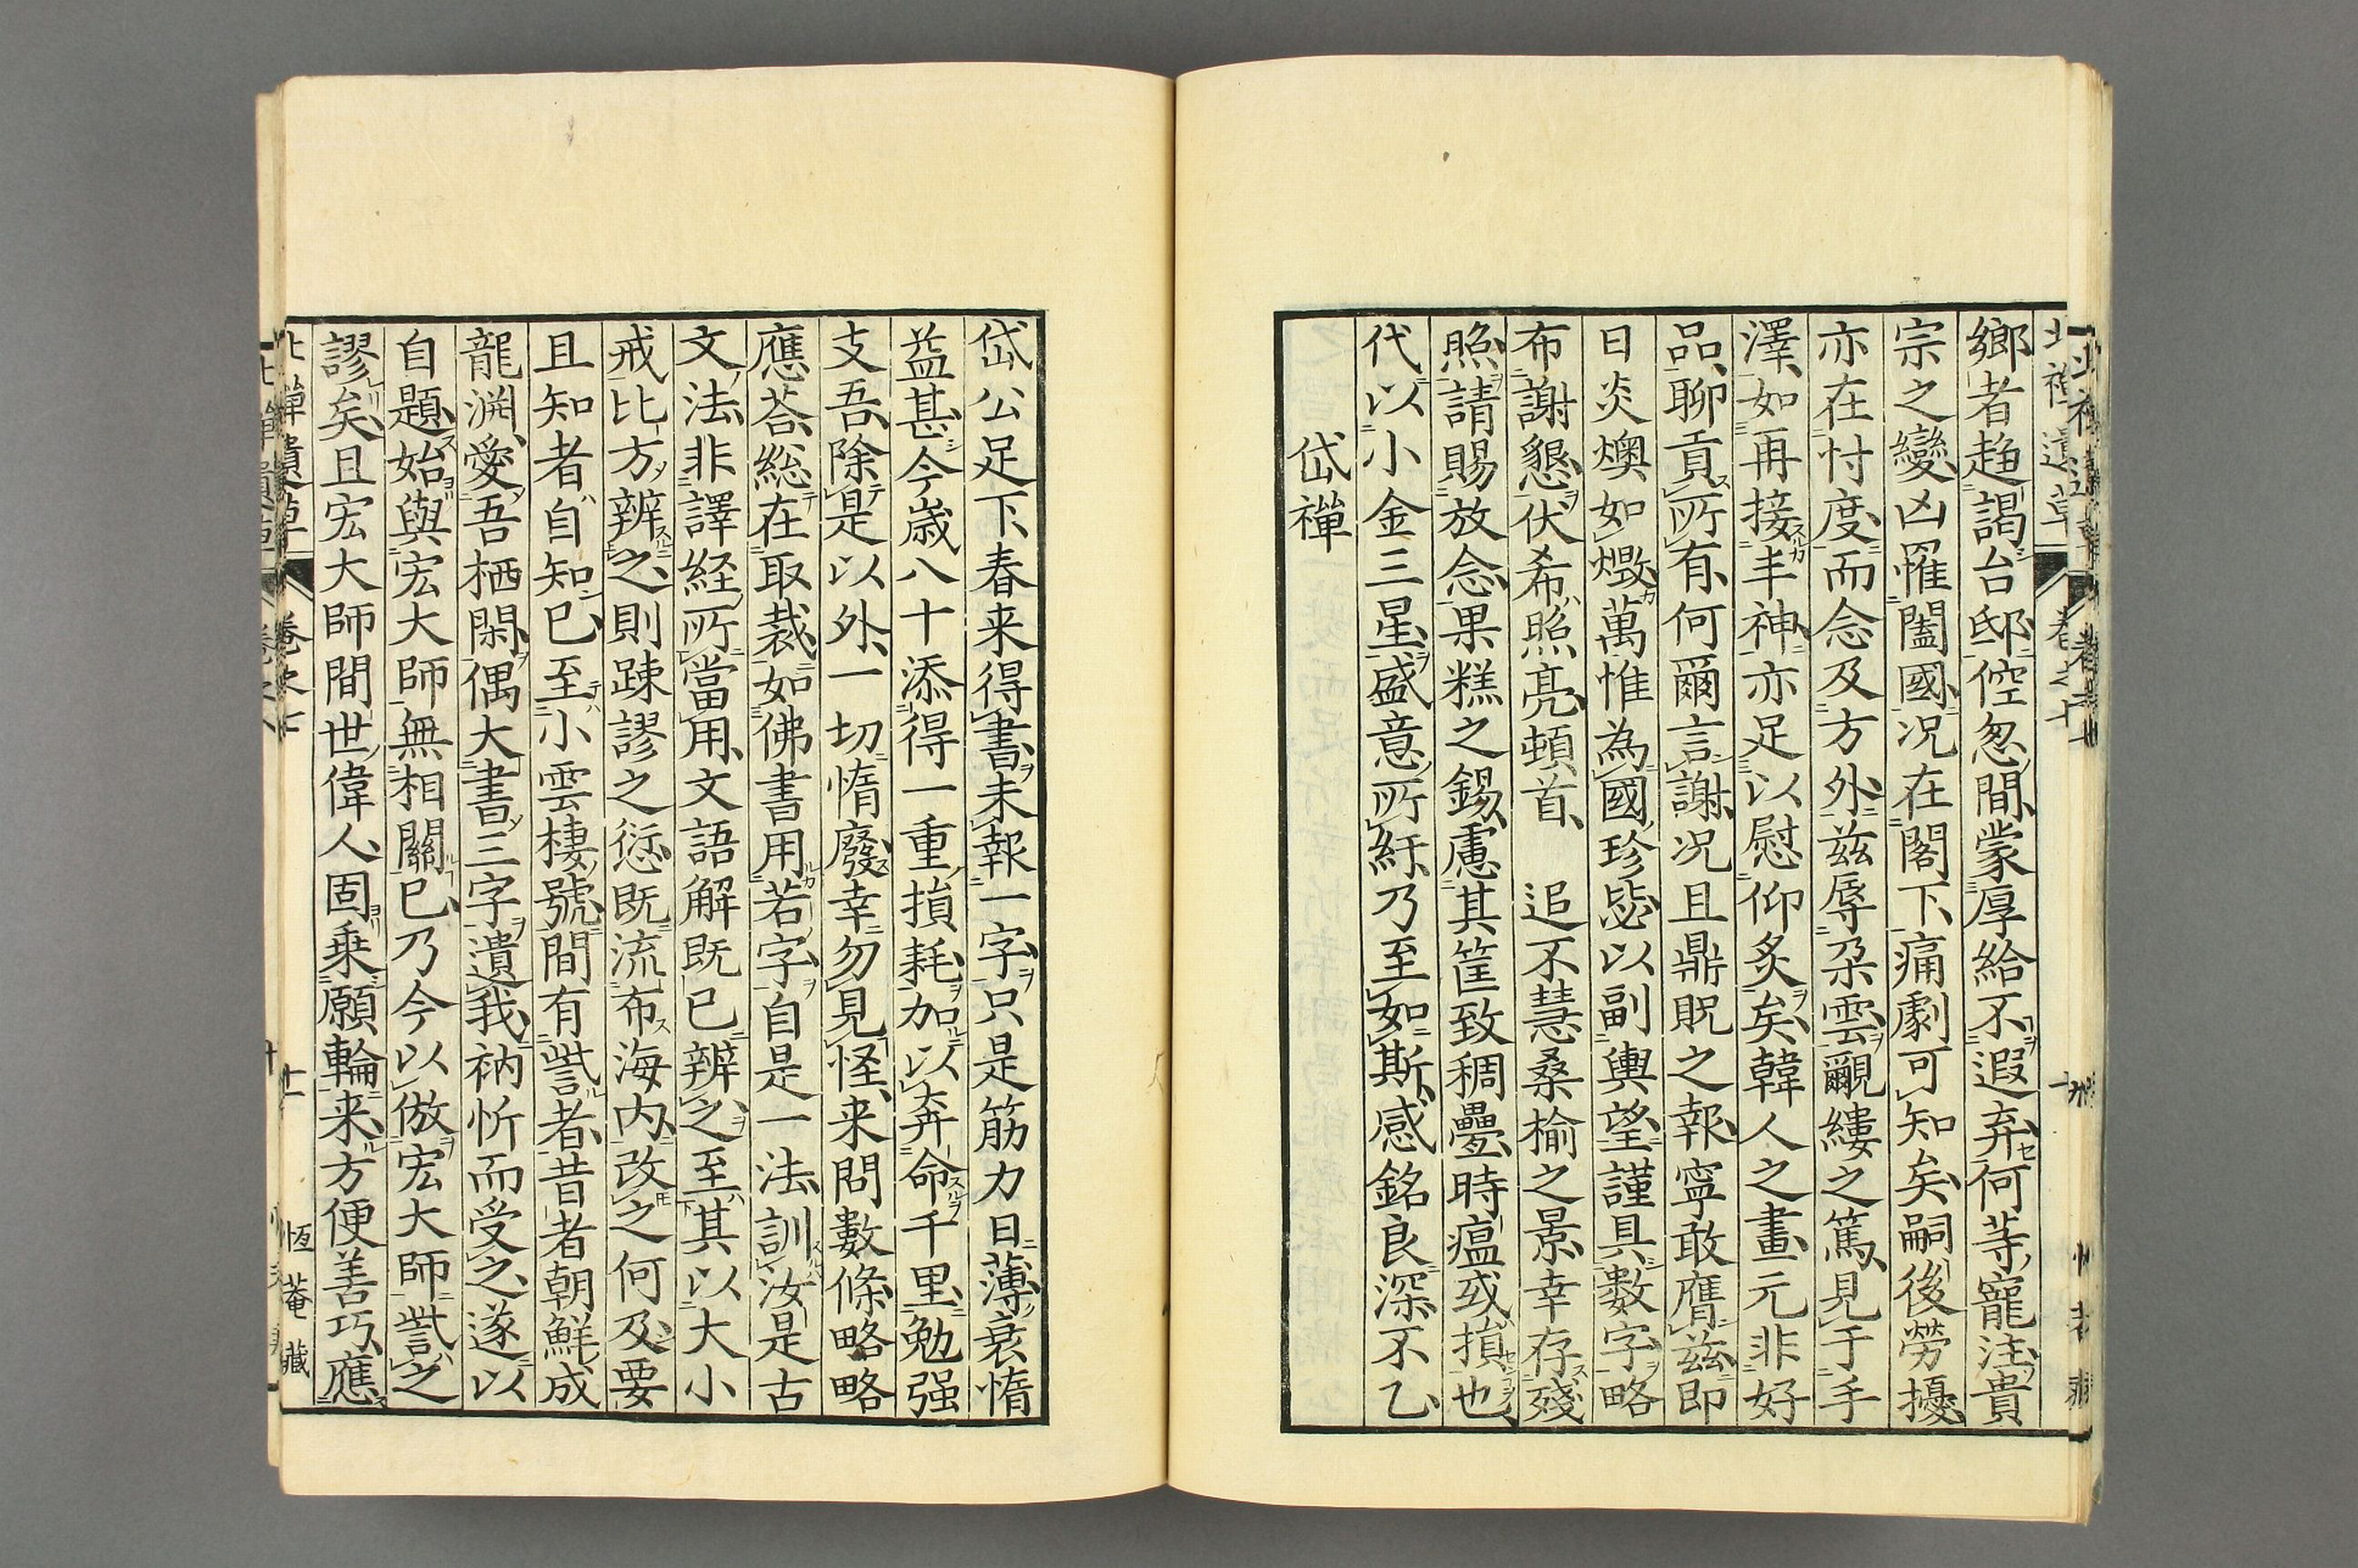 鄉者趨謁台邸倥忽間蒙厚給不遐弃何等寵注貴
宗之變凶罹闔國况在閣下痛劇可知矣嗣後勞擾
亦在忖度而念及方外茲辱朶雲覼縷之篤見于手
澤如再接丰神亦足以慰仰炙矣韓人之畫元非好
品聊貢所有何爾言謝况且鼎貺之報寧敢膺茲即
日炎燠如燬萬惟為國珍毖以副輿望謹具數字略
布謝懇伏希照亮頓首　追不慧桑榆之景幸存殘
照請賜放念果糕之錫慮其筐致稠疊時瘟或損也
代以小金三星盛意所紆乃至如斯感銘良深不乙
岱禪
岱公足下春来得書未報一字只是筋力日薄衰惰
益甚今歳八十添得一重損耗加以奔命千里勉强
支吾除是以外一切惰廢幸勿見怪来問數條略略
應荅総在取裁如佛書用若字自是一法訓汝是古
文法非譯経所當用文語解既已辨之至其以大小
戒比方辨之則踈謬之愆既流布海内改之何及要
且知者自知已至小雲棲號間有訾者昔者朝鮮成
龍渊愛吾栖閑偶大書三字遺我衲忻而受之遂以
自題始與宏大師無相關已乃今以倣宏大師訾之
謬矣且宏大師間世偉人固乗願輪来方便善巧應
北禪遺草　卷之七　十一　恆菴藏